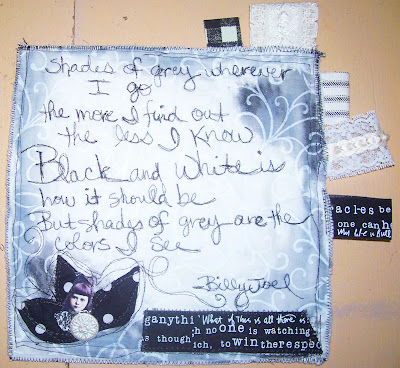 Shades of grey wherever
I go
the more I find out
the less I know
Black and white is
how it should be
But shades of grey are the
colors I see
Billy Joel
acles be
one can
What Life is
ganythi What if this is all there is
h no one is watching
s though ich, to win the respec